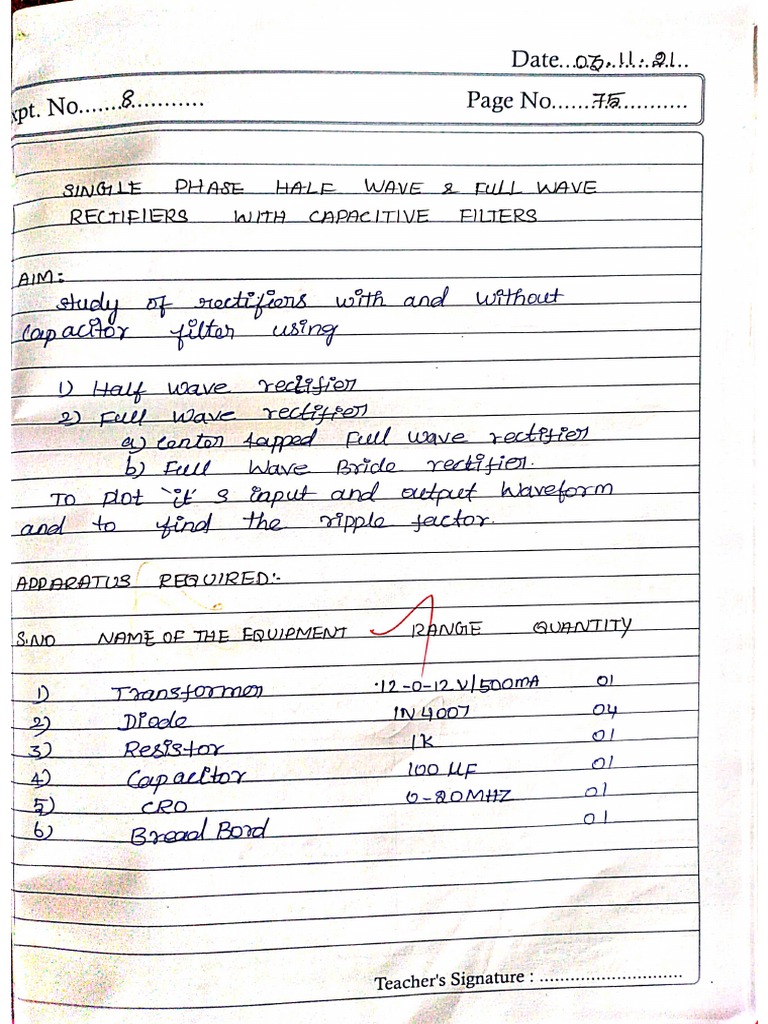 Date...03.11.21..
xpt. No......8...........
Page No......75...........
SINGLE PHASE HALF WAVE & FULL WAVE
RECTIFIERS WITH CAPACITIVE FILTERS
AIM:
study of rectifiers with and without
capacitor filter using
1) Half wave rectifier
2) Full wave rectifier
a) Center tapped Full wave rectifier
b) Full Wave Bride rectifier.
To plot it's input and output Waveform
and to find the ripple factor.
APPARATUS REQUIRED:-
S.NO NAME OF THE EQUIPMENT RANGE QUANTITY
1) Transformer 12-0-12V/500mA 01
2) Diode IN4007 04
3) Resistor 1K 01
4) Capacitor 100 µF 01
5) CRO 0-20MHZ 01
6) Bread Bord 01
Teacher's Signature : ............................